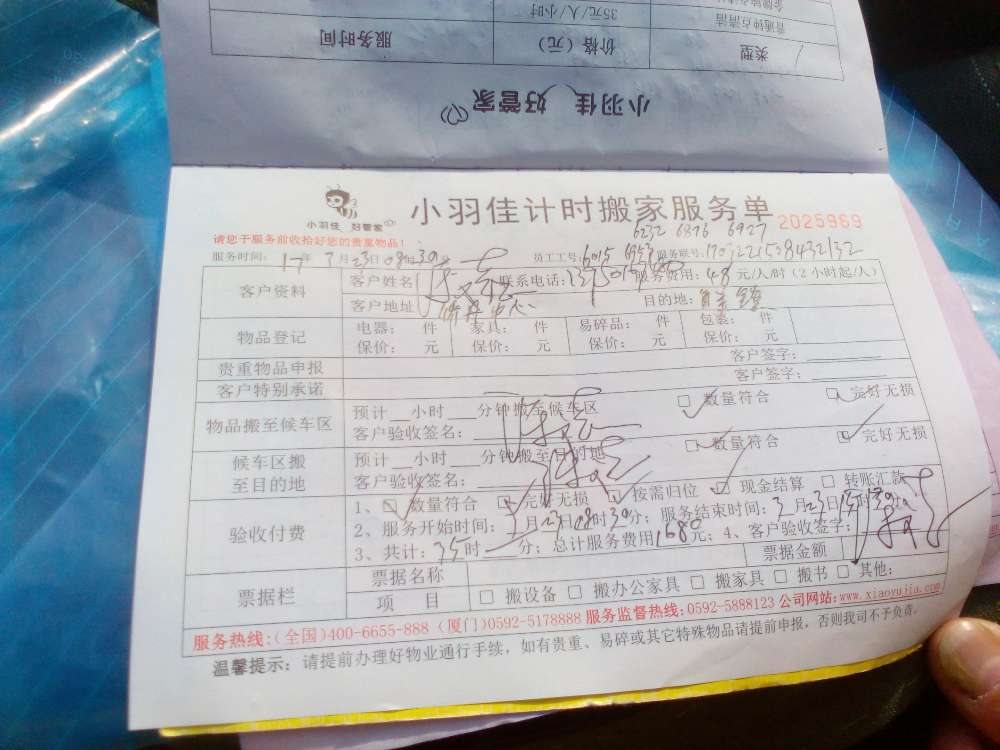 金牌钟点清洁
普通钟点清洁 35元/人/小时
类型 价格（元） 服务时间
小羽佳 好管家
小羽佳 好管家
小羽佳计时搬家服务单 2025969
6232 6876 6927
请您于服务前收拾好您的贵重物品！
服务时间：17年3月23日08时30 员工工号：6015 6953 服务联号：
客户资料 客户姓名 联系电话： 服务费用：48元/人/时（2小时起/人）
客户地址 目的地：
物品登记 电器： 件 家具： 件 易碎品： 件 包裹： 件
保价： 元 保价： 元 保价： 元 保价： 元
贵重物品申报 客户签字：
客户特别承诺 客户签字：
物品搬至候车区 预计__小时___分钟搬至候车区 数量符合 完好无损
客户验收签名：
候车区搬至目的地 预计__小时___分钟搬至目的地 数量符合 完好无损
客户验收签名：
验收付费 1、 数量符合 完好无损 按需归位 现金结算 转账汇款
2、服务开始时间：3月23日08时30分；服务结束时间：3月23日
3、共计：35时 分；总计服务费用1680元；4、客户验收签字：
票据栏 票据名称 票据金额
项 目 搬设备 搬办公家具 搬家具 搬书 其他：
服务热线：(全国)400-6655-888 (厦门)0592-5178888 服务监督热线：0592-5888123 公司网站：www.xiaoyujia.com
温馨提示：请提前办理好物业通行手续，如有贵重、易碎或其它特殊物品请提前申报，否则我司不予负责。